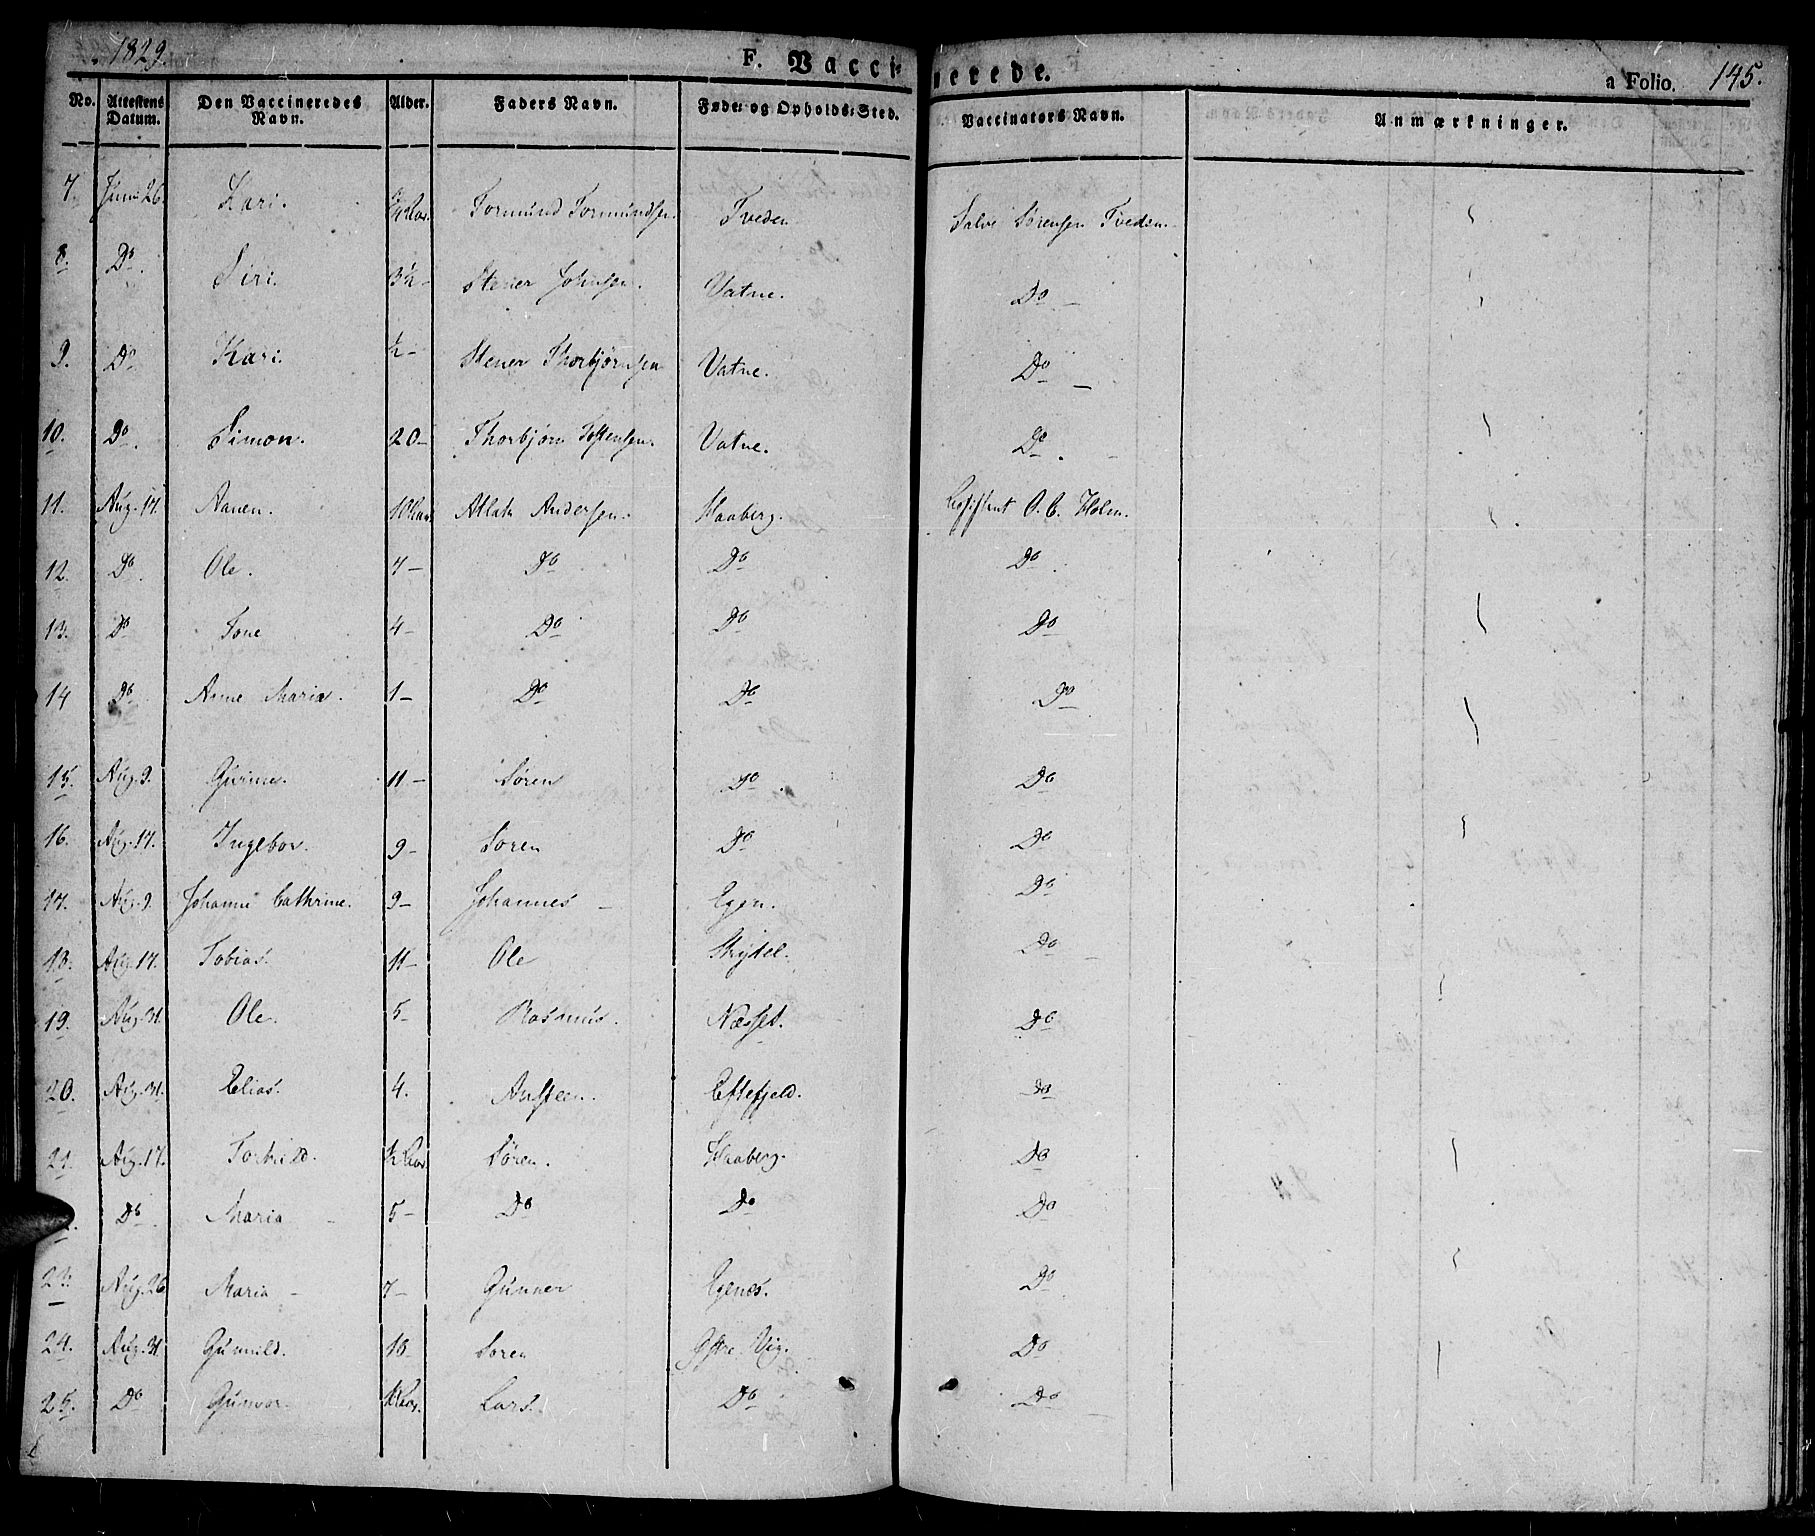 1829. F. Vaccinerede. a Folio. 145.
No. Attestens Datum. Den Vaccineredes Navn. Alder. Faders Navn. Føde- og Opholds-Sted. Vaccinators Navn. Anmærkninger.
7. Juni 26. Kari. Tormund Tormundsen. Tveden Salve Sørensen Tveden
8. Do. Siri. 3½ Stener Johnsen. Vatne. Do
9. Do Kari. ½ Stener Thorbjørnsen Vatne. Do
10. Do. Simon. 20 Thorbjørn Vatne. Do.
11. Aug. 17. Aanen. 10 Aar Atlak Andersen. Haaberg. Assistent O. C. Holm.
12. Do. Ole. 4 Do Do Do.
13. Do Tone 4 Do Do Do
14 Do. Anne Maria. 1 Do Do Do
15. Aug. 9. Gurine. 11 Søren Do Do
16. Aug. 17. Ingebor. 9 Søren Do Do
17. Aug. 9. Johanne Cathrine. 9 Johannes Egen. Do
18. Aug. 17. Tobias. 11 Ole Do
19. Aug. 31. Ole. 5 Rasmus. Næsset. Do
20. Aug. 31. Elias. 4. Ansteen. Eftefjeld. Do
21. Aug. 17. Torkild. Aar Søren. Haaberg. Do
Do. Maria 5 Do Do Do
23. Aug. 26 Maria 7 Gunner Egenes. Do
24. Aug. 31. Gunnild. 10 Søren Østre Vig. Do
25. Do Gunvor. Aar. Lars. Do Do